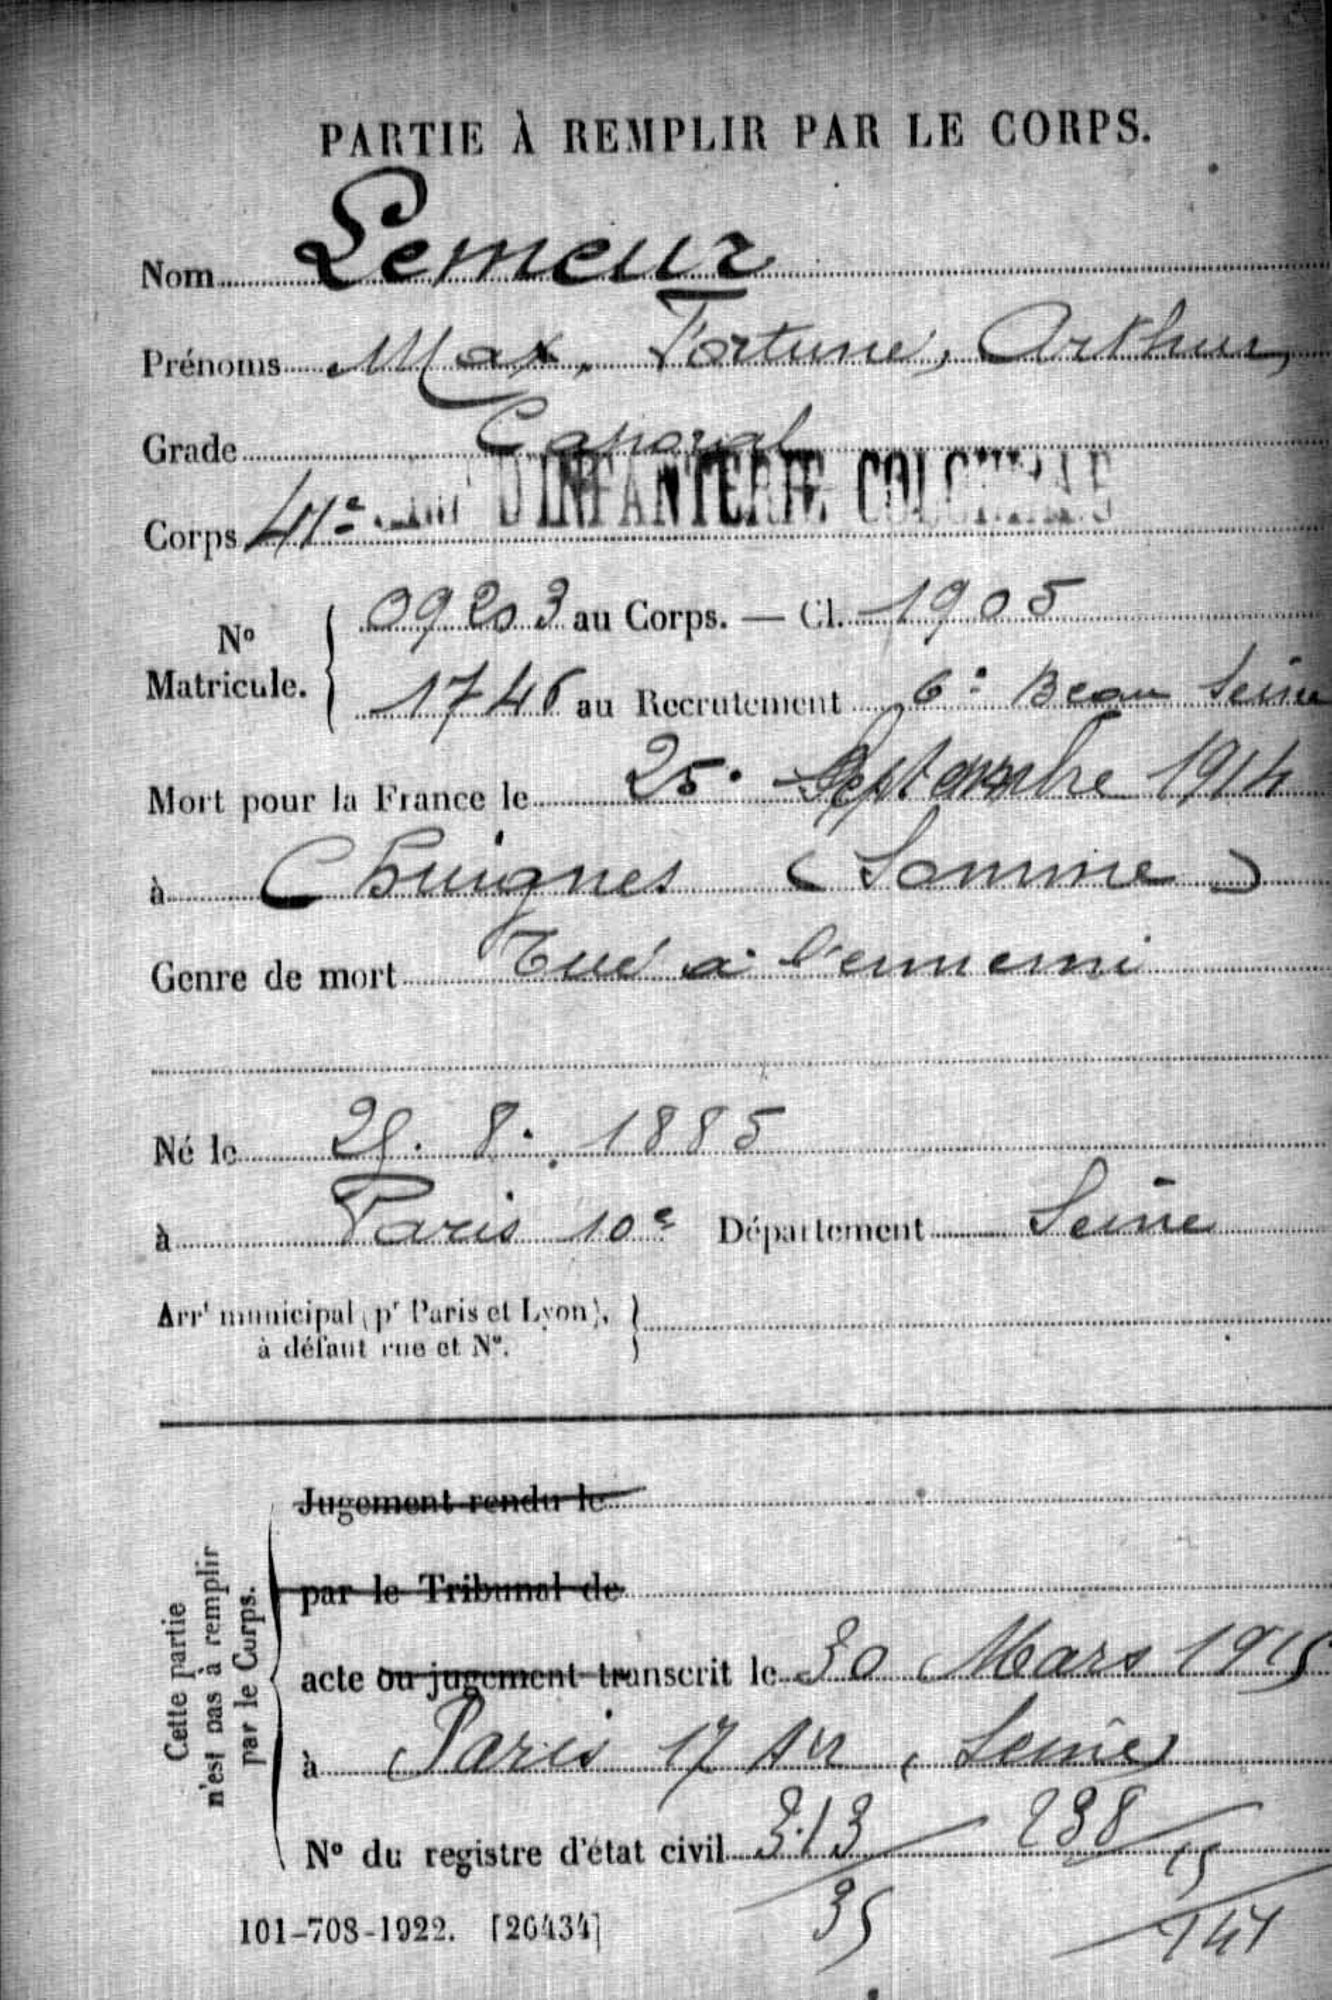 PARTIE À REMPLIR PAR LE CORPS.
Nom Lemeur
Prénoms Max, Fortuné, Arthur,
Grade Caporal
Corps 41e D'INFANTERIE COLONIALE
No Matricule. 09203 au Corps. — Cl. 1905
1746 au Recrutement 6e Beau Seine
Mort pour la France le 25. Septembre 1914
à Chuignes (Somme)
Genre de mort Tué à l'ennemi
Né le 8. 1885
à Paris 10e Département Seine
Arrt municipal (pr Paris et Lyon),
à défaut rue et No.
Cette partie
n'est pas à remplir
par le Corps.
Jugement rendu le
par le Tribunal de
acte ou jugement transcrit le 30 Mars 1915
à Paris 17 Arr (Seine)
No du registre d'état civil 313 238
35 15
141
101-708-1922. [26434]